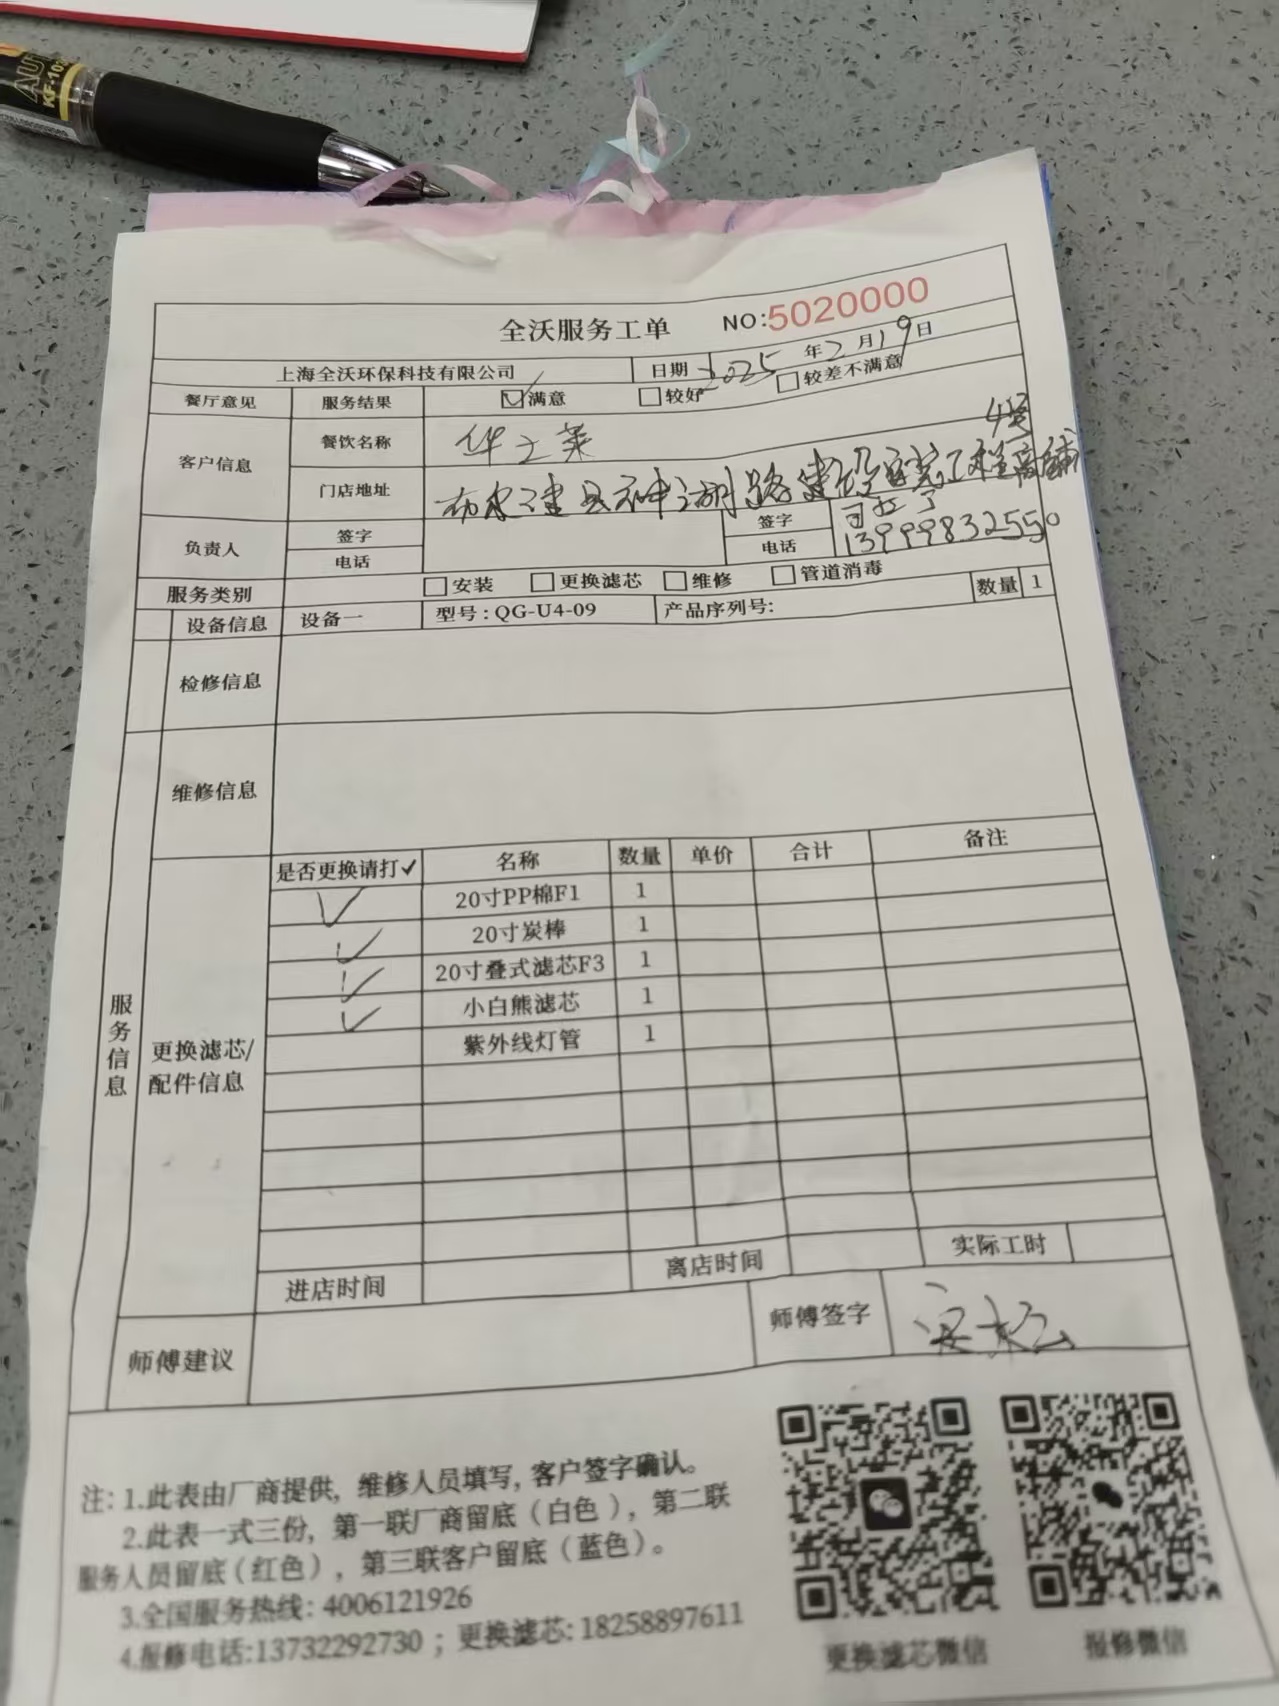 全沃服务工单 NO:5020000
上海全沃环保科技有限公司 日期 2025 年 2 月 19 日
餐厅意见 服务结果 ☑满意 □较好 □较差不满意
客户信息 餐饮名称 华之莱
门店地址 县 湖路 商铺 4
负责人 签字 签字
电话 电话 13999832550
服务类别 □安装 □更换滤芯 □维修 □管道消毒
设备信息 设备一 型号:QG-U4-09 产品序列号: 数量 1
检修信息
维修信息
服务信息
更换滤芯/配件信息
是否更换请打✓ 名称 数量 单价 合计 备注
✓ 20寸PP棉F1 1
✓ 20寸炭棒 1
✓ 20寸叠式滤芯F3 1
✓ 小白熊滤芯 1
紫外线灯管 1
进店时间 离店时间 实际工时
师傅建议 师傅签字
注: 1.此表由厂商提供, 维修人员填写, 客户签字确认。
2.此表一式三份, 第一联厂商留底(白色), 第二联
服务人员留底(红色), 第三联客户留底(蓝色)。
3.全国服务热线: 4006121926
4.报修电话:13732292730 ; 更换滤芯: 18258897611
更换滤芯微信 报修微信